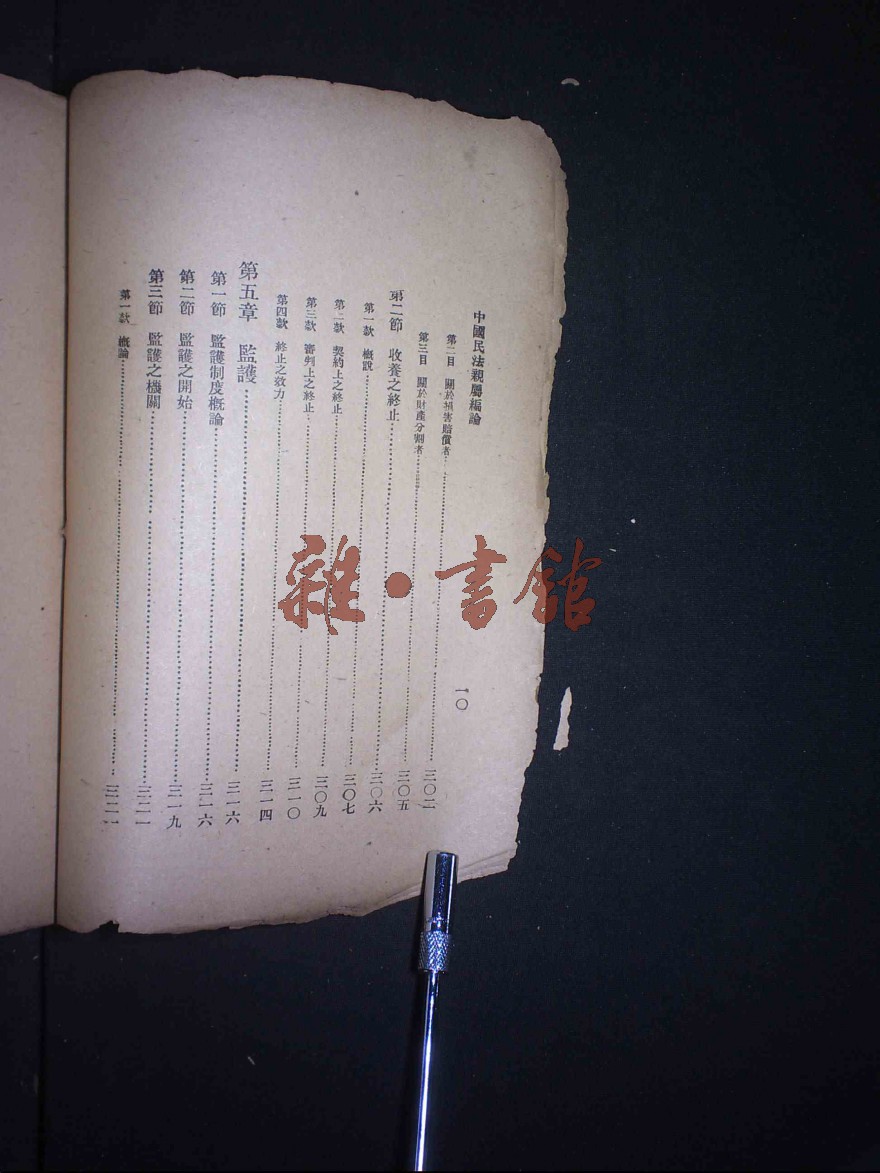 中國民法親屬編論 一〇
第二目 關於損害賠償者……三〇二
第三目 關於財產分割者……三〇五
第二節 收養之終止……三〇六
第一款 概說……三〇七
第二款 契約上之終止……三〇九
第三款 審判上之終止……三一〇
第四款 終止之效力……三一四
第五章 監護……三一六
第一節 監護制度概論……三一六
第二節 監護之開始……三一九
第三節 監護之機關……三二一
第一款 概論……三二一
雜·書館